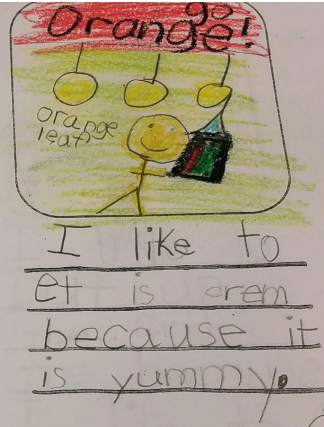 go
Orange!
orange
leaf
I like to
et is crem
because it
is yummy.